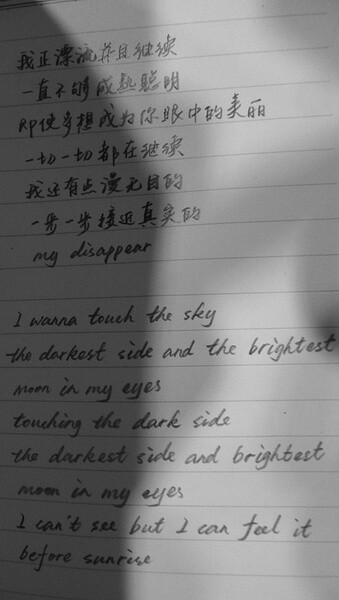 我正漂流并且继续
一直不够成熟聪明
即使多想成为你眼中的美丽
一切一切都在继续
我还有点漫无目的
一步一步接近真实的
my disappear
I wanna touch the sky
the darkest side and the brightest
moon in my eyes
touching the dark side
the darkest side and brightest
moon in my eyes
I can't see but I can feel it
before sunrise